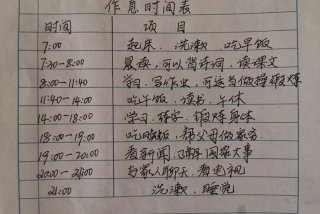 作息时间表
时间 项目
7:00 起床、洗漱、吃早饭
7:20-8:00 晨读,可以背诗词、读课文
8:00-11:40 学习、写作业,可适当做操锻炼
11:40-14:00 吃午饭、读书、午休
14:00-18:00 学习、练字、锻炼身体
18:00-19:00 吃晚饭、帮父母做家务
19:00-20:00 看新闻,了解国家大事
20:00-21:00 与家人聊天、看电视
21:00 洗漱、睡觉